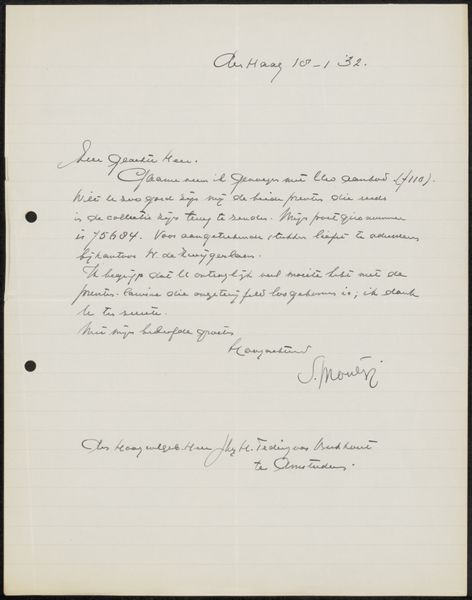 den Haag 18-1 '32.
Zeer geachte Heer.
Gaarne neem ik genoegen met Uw aanbod (ƒ110).
Wilt U zoo goed zijn mij de beide prenten die reeds
in de collectie zijn terug te zenden. Mijn postgiro nummer
is 75684. Voor aangeteekende stukken liefst te adresseeren
bijkantoor H. de
Ik begrijp dat U ontzaglijk veel moeite hebt met de
prenten. die ongetwijfeld is; ik dank
U ten zeerste.
Met mijn beleefde groeten
Hoogachtend
S. Moulijn
Den Hoogwelgeb. Heer Jhr H. Teding van Berkhout
te Amsterdam.